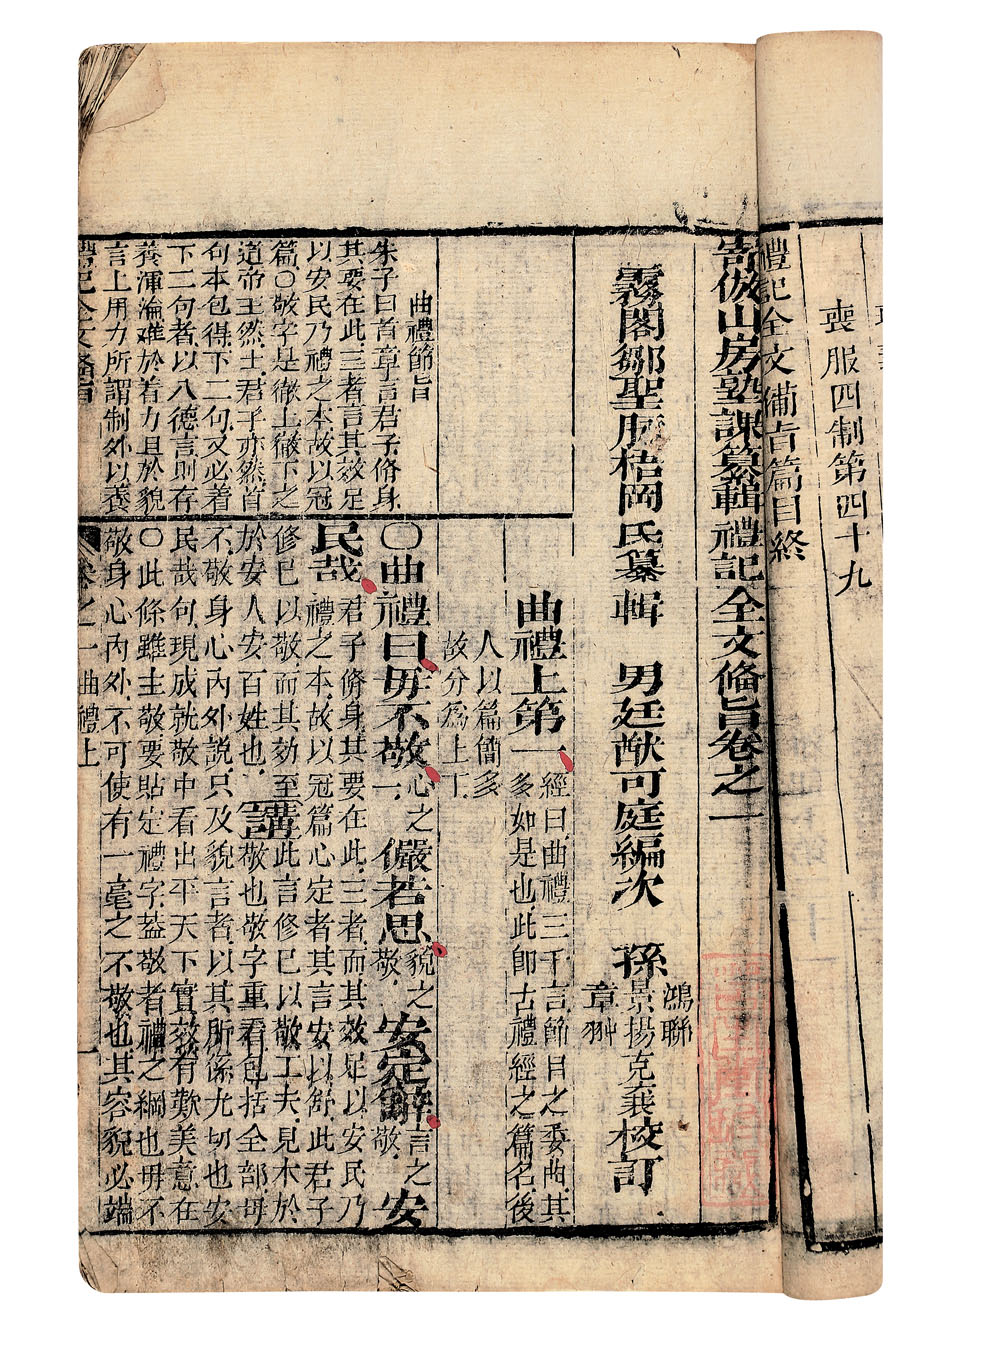 喪服四制第四十九
禮記全文備旨篇目終
寄傲山房塾課纂輯禮記全文備旨卷之一
霧閣鄒聖脉梧岡氏纂輯 男廷猷可庭編次 孫景揚克襄校訂
鴻聯
章翀
曲禮上第一
經曰曲禮三千言節目之委曲其
多如是也此即古禮經之篇名後
人以篇簡多
故分爲上下
曲禮節旨
朱子曰首章言君子脩身
其要在此三者言其效足
以安民乃禮之本故以冠
篇○敬字是徹上徹下之
道帝王然士君子亦然首
句本包得下二句又必着
下二句者以八德言則存
養渾淪難於着力且於貌
言上用力所謂制外以養
○曲禮曰毋不敬心之敬一儼若思貌之敬安定辭言之敬安
民哉君子脩身其要在此三者而其效足以安民乃
禮之本故以冠篇心定者其言安以舒此君子
修已以敬而其効至
於安人安百姓也
講此言修已以敬工夫見木於
敬也敬字重看包括全部毋
不敬身心内外說只及貌言者以其所係尤切也安
民哉句現成就敬中看出平天下實效有歎美意在
○此條雖主敬要貼定禮字葢敬者禮之綱也毋不
敬身心内外不可使有一毫之不敬也其容貌必端
禮記全文備旨
卷之一 曲禮上 一